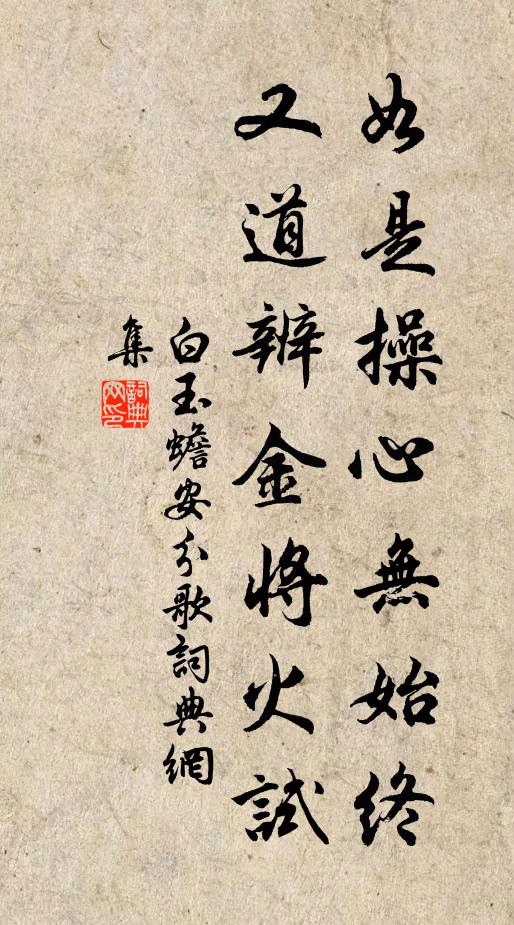 如是操心無始終
又道辨金將火試
白玉蟾安分歌詞典網
集
詞典
网印